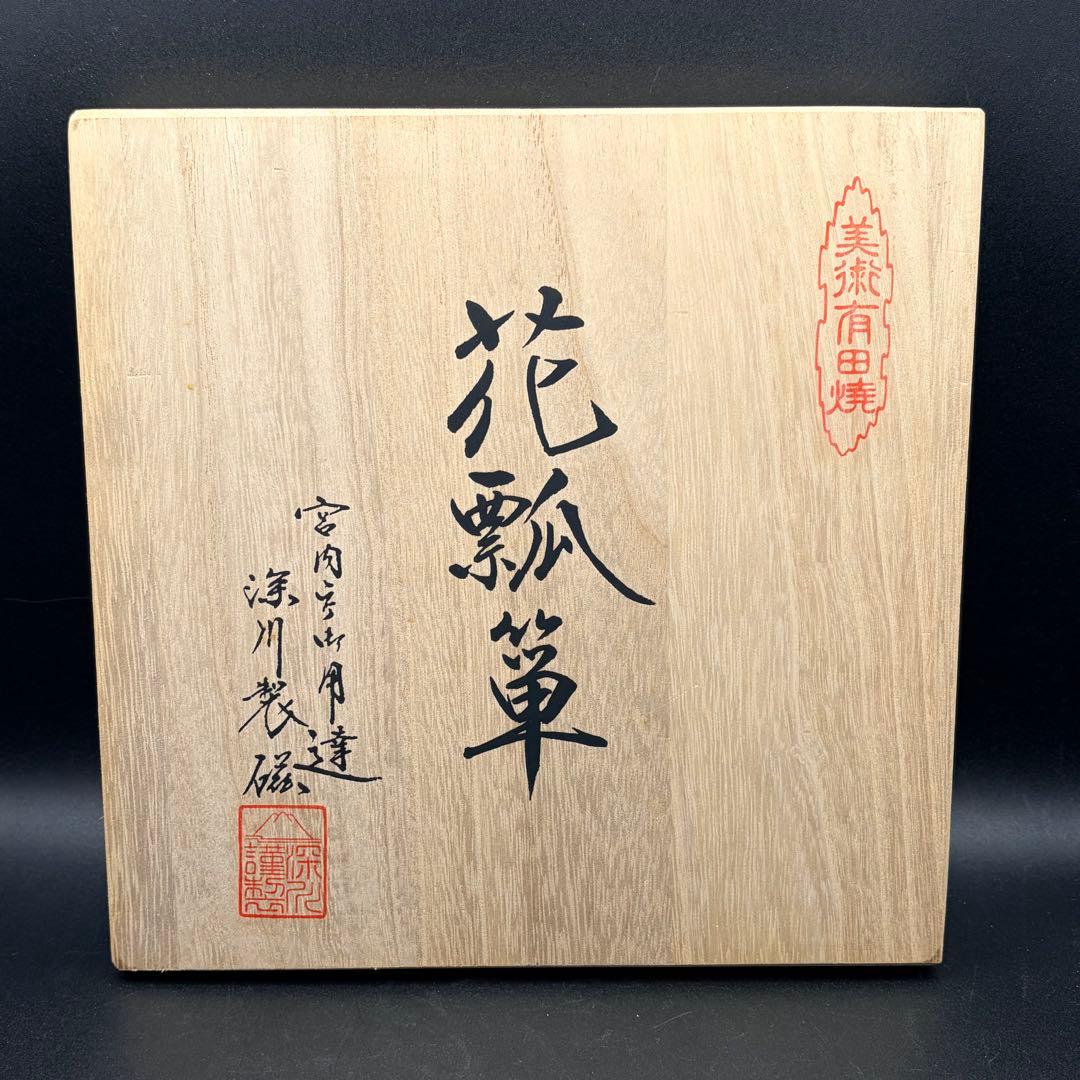 美術有田燒
花瓢箪
宮内庁御用達
深川製磁
深川
謹製